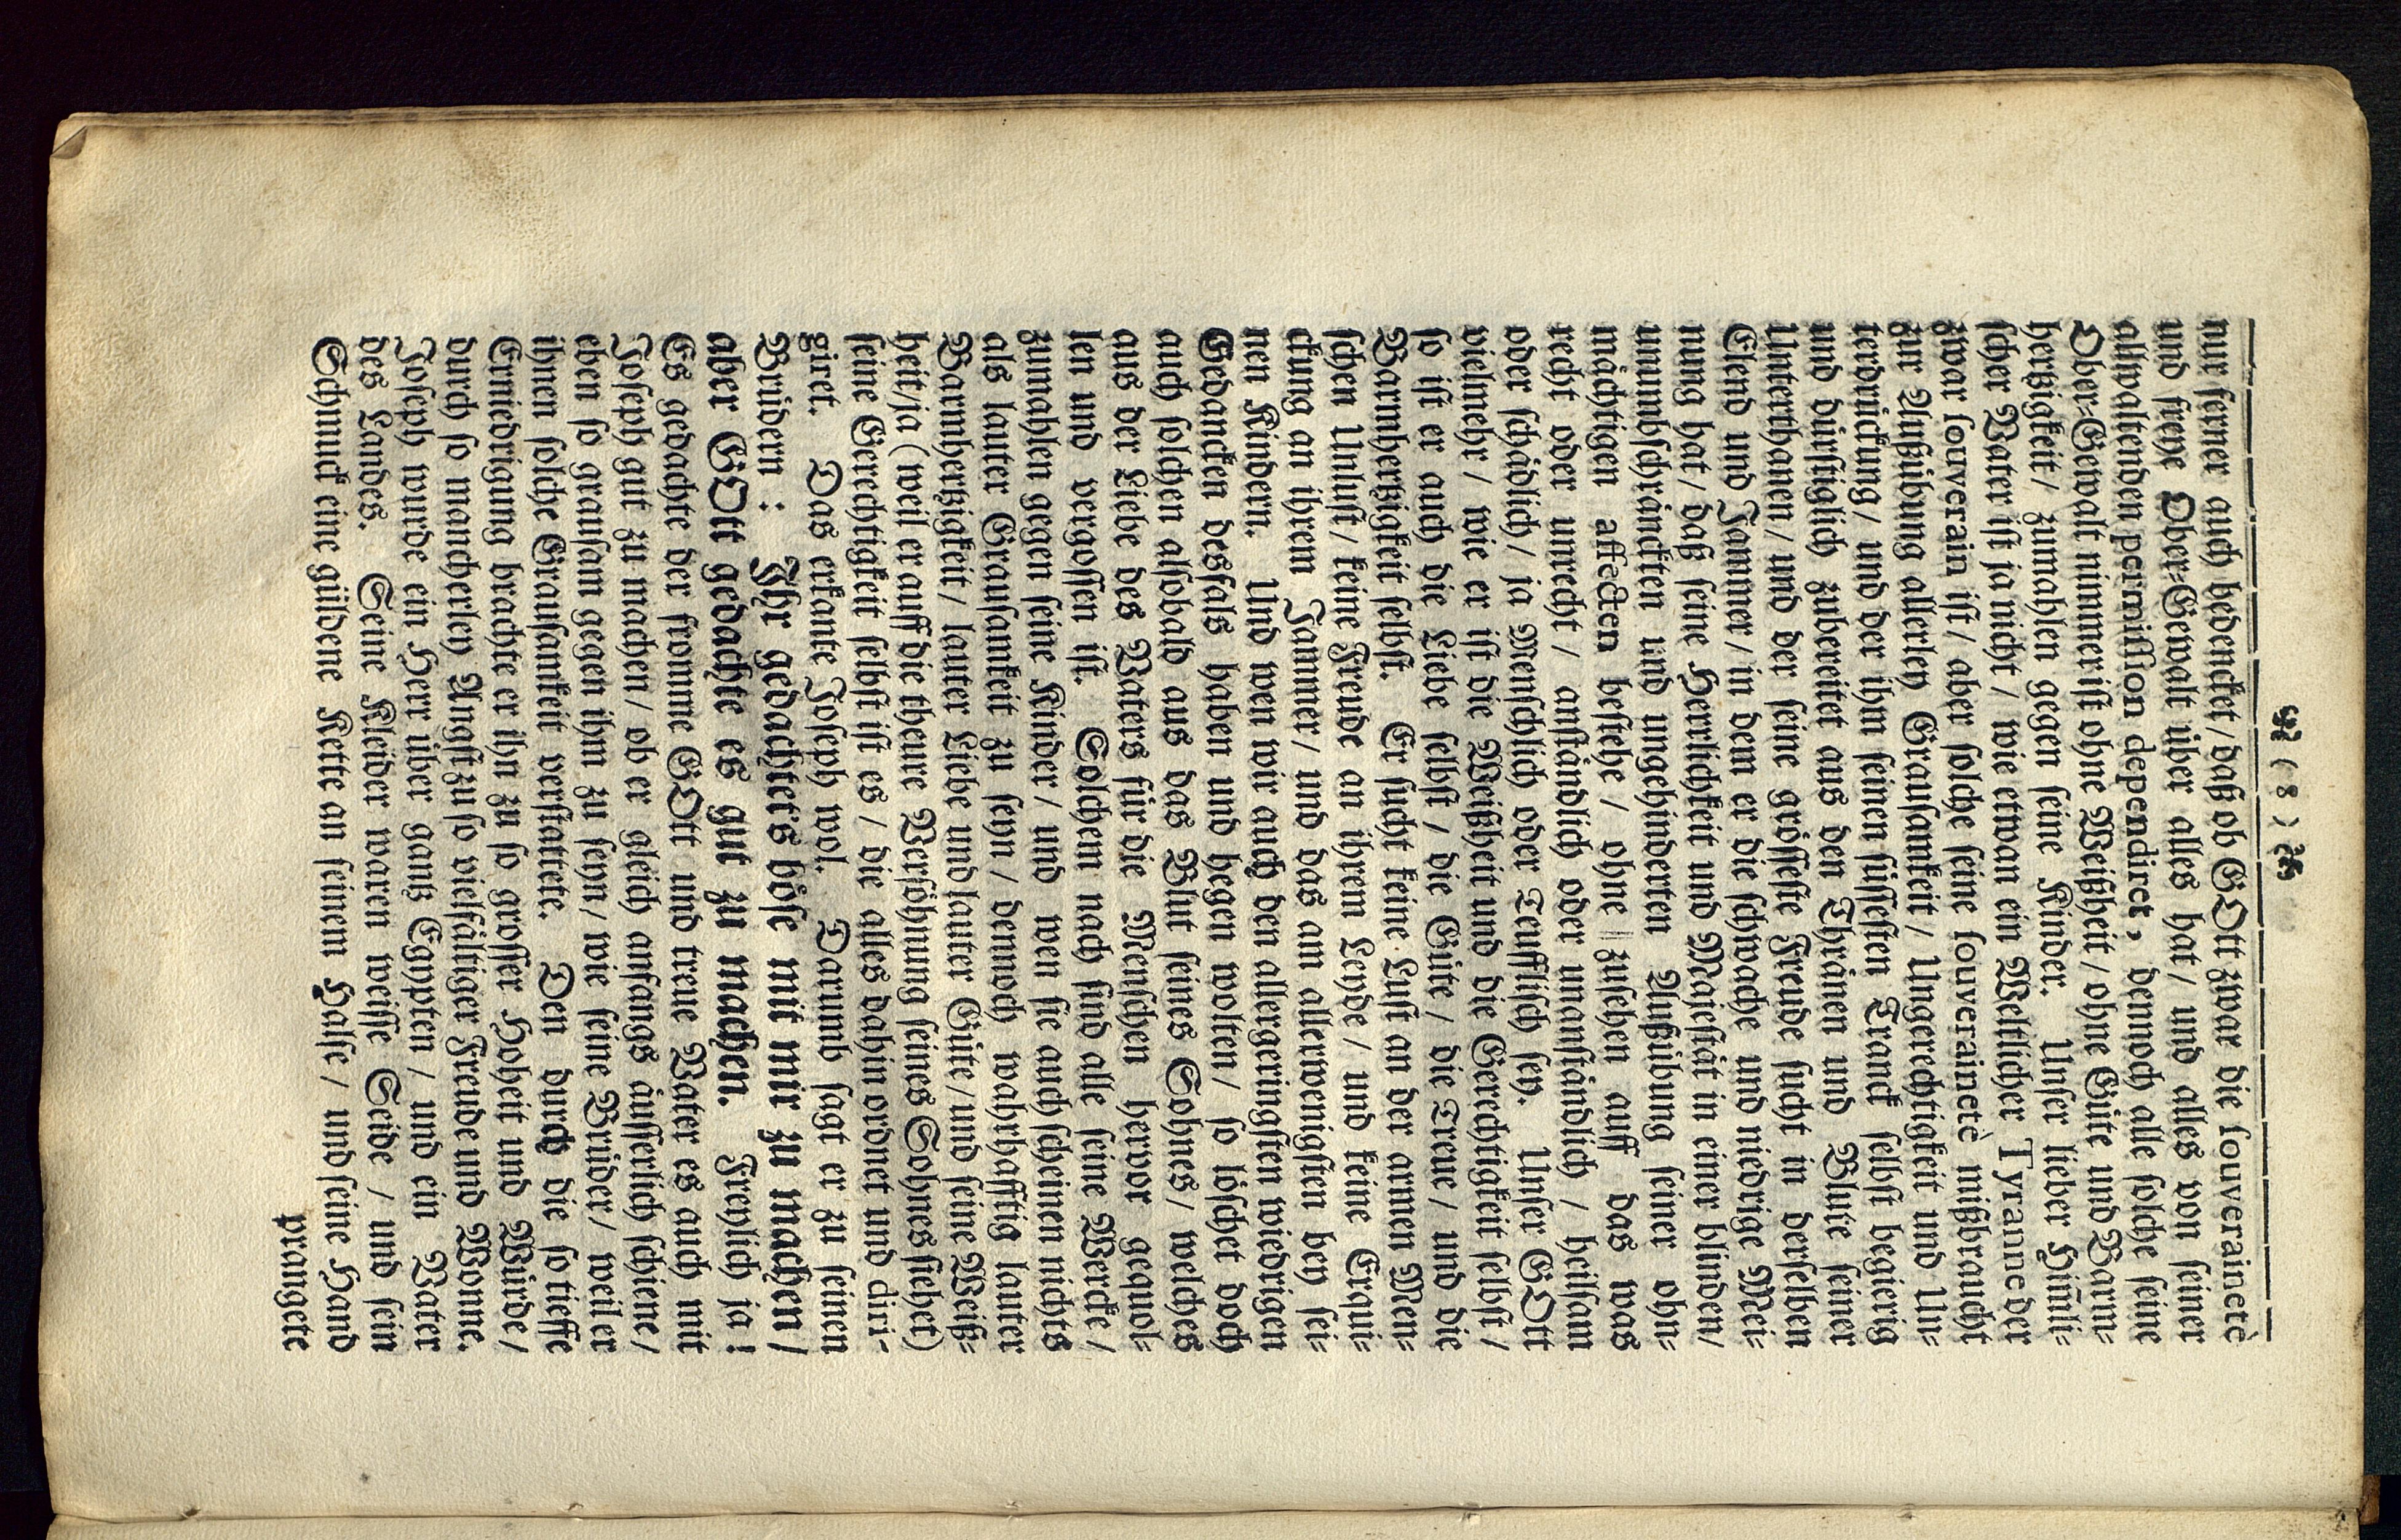 ( 8 )
nur ferner auch bedencket / daß ob GOtt zwar die souverainetè
und freye Ober-Gewalt über alles hat / und alles von seiner
allwaltenden permission dependiret, dennoch alle solche seine
Ober-Gewalt nimmer ist ohne Weißheit / ohne Güte und Barm-
hertzigkeit / zumahlen gegen seine Kinder. Unser lieber Him̃li-
scher Vater ist ja nicht / wie etwan ein Weltlicher Tyranne der
zwar souverain ist / aber solche seine souverainetè mißbraucht
zur Außübung allerley Grausamkeit / Ungerechtigkeit und Un-
terdrückung / und der ihm seinen süssesten Tranck selbst begierig
und dürstiglich zubereitet aus den Thränen und Blute seiner
Unterthanen / und der seine grösseste Freude sucht in derselben
Elend und Jammer / in dem er die schwache und niedrige Mei-
nung hat / daß seine Herrlichkeit und Majestät in einer blinden /
umumbschränckten und ungehinderten Außübung seiner ohn-
mächtigen affecten bestehe / ohne zusehen auff das was
recht oder unrecht / anständlich oder unanständlich / heilsam
oder schädlich / ja Menschlich oder Teufflisch sey. Unser GOtt
vielmehr / wie er ist die Weißheit und die Gerechtigkeit selbst /
so ist er auch die Liebe selbst / die Güte / die Treue / und die
Barmhertzigkeit selbst. Er sucht keine Lust an der armen Men-
schen Unlust / keine Freude an ihrem Leyde / und keine Erqui-
ckung an ihrem Jammer / und das am allerwenigsten bey sei-
nen Kindern. Und wen wir auch den allergeringsten wiedrigen
Gedancken desfals haben und hegen wolten / so löschet doch
auch solchen alsobald aus das Blut seines Sohnes / welches
aus der Liebe des Vaters für die Menschen hervor gequol-
len und vergossen ist. Solchem nach sind alle seine Wercke /
zumahlen gegen seine Kinder / und wen sie auch scheinen nichts
als lauter Grausamkeit zu seyn / dennoch wahrhafftig lauter
Barmhertzigkeit / lauter Liebe und lauter Güte / und seine Weiß-
heit / ja (weil er auff die theure Versöhnung seines Sohnes siehet)
seine Gerechtigkeit selbst ist es / die alles dahin ordnet und diri-
giret. Das erkante Joseph wol. Darumb sagt er zu seinen
Brüdern : Ihr gedachtet's böse mit mir zu machen /
aber GOtt gedachte es gut zu machen. Freylich ja !
Es gedachte der fromme GOtt und treue Vater es auch mit
Joseph gut zu machen / ob er gleich anfangs äusserlich schiene /
eben so grausam gegen ihm zu seyn / wie seine Brüder / weil er
ihnen solche Grausamkeit verstattete. Den durch die so tieffe
Erniedrigung brachte er ihn zu so grosser Hoheit und Würde /
durch so mancherley Angst zu so vielfältiger Freude und Wonne.
Joseph wurde ein Herr über gantz Egypten / und ein Vater
des Landes. Seine Kleider waren weisse Seide / und sein
Schmuck eine güldene Kette an seinem Halse / und seine Hand
prangete